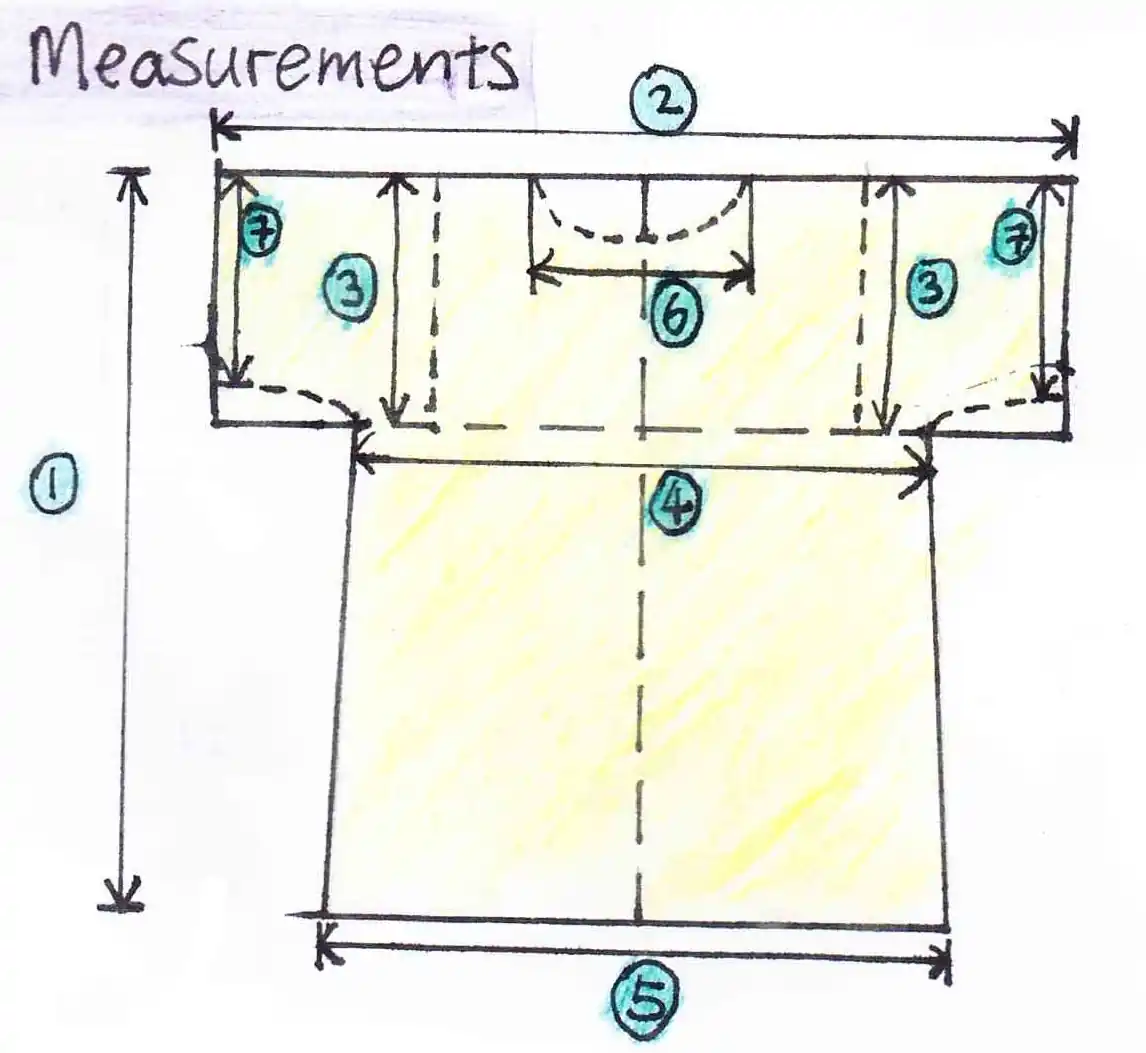 Measurements
2
7
7
3
3
6
1
4
5